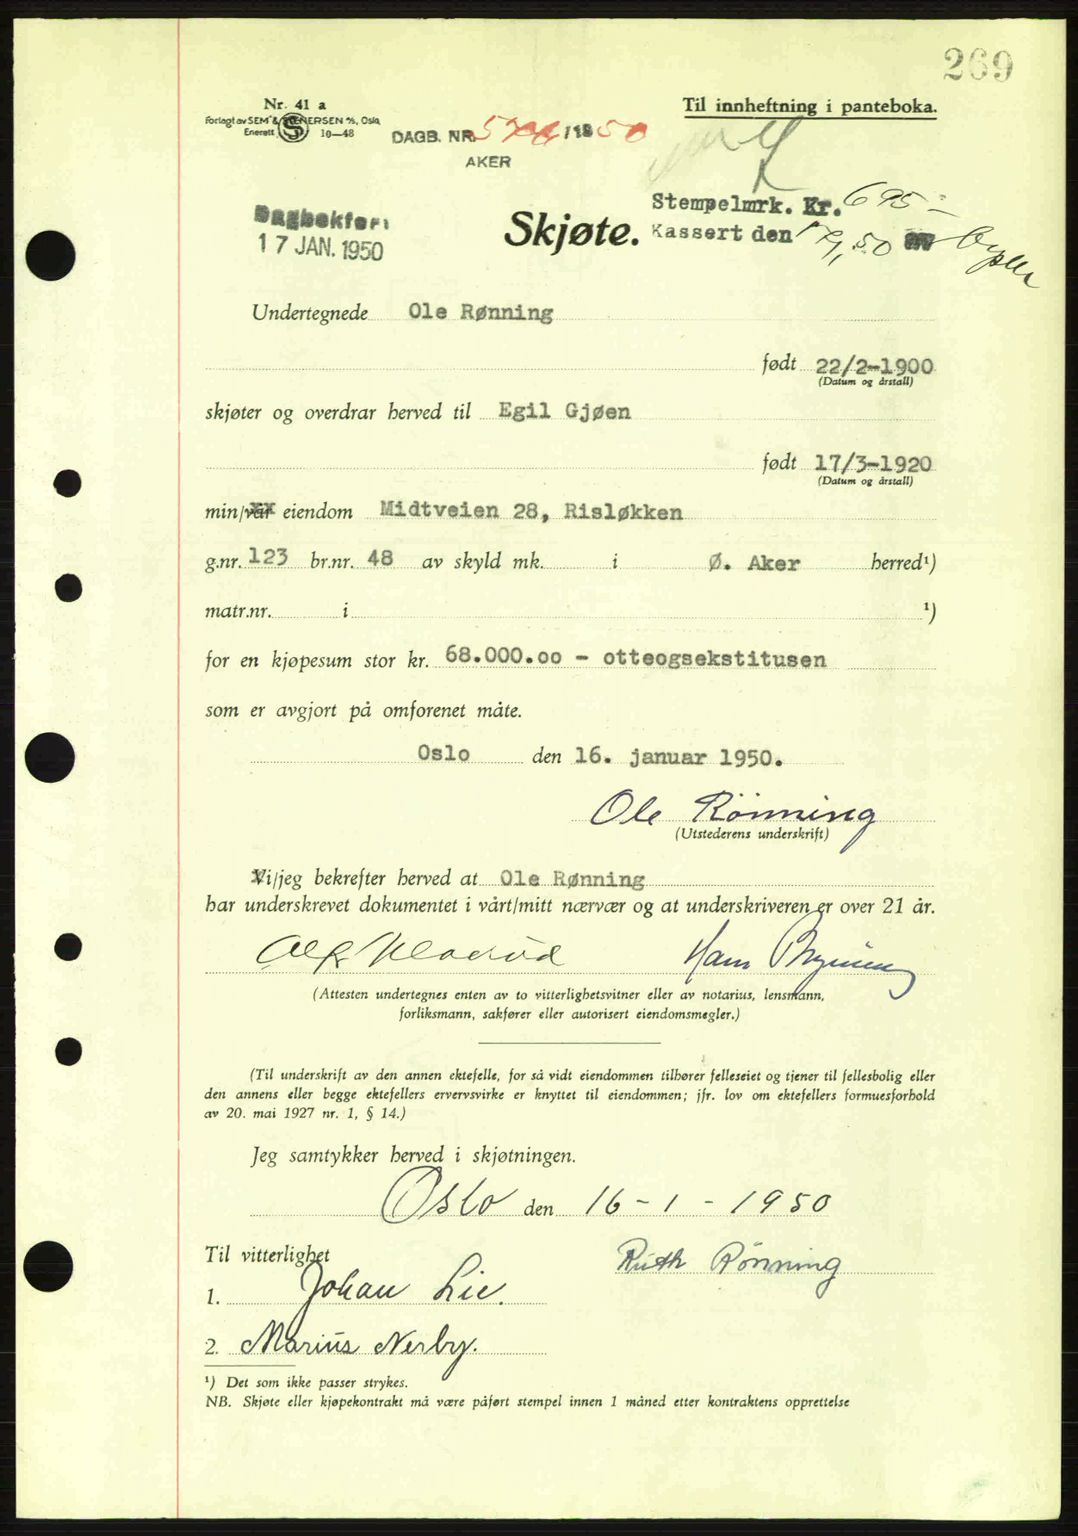 269
Nr. 41 a
Forlagt av SEM & STENERSEN A/S, Oslo
Enerett 10—48
Til innheftning i panteboka.
DAGB. NR. /19 50
AKER
Stempelmrk. Kr. 695 -
Dagbokført
17 JAN. 1950
Skjøte.
Kassert den 17/1 50
Undertegnede Ole Rønning
født 22/2-1900
(Datum og årstall)
skjøter og overdrar herved til Egil Gjøen
født 17/3-1920
(Datum og årstall)
min/vår eiendom Midtveien 28, Risløkken
g.nr. 123 br.nr. 48 av skyld mk. i Ø. Aker herred¹)
matr.nr. i ¹)
for en kjøpesum stor kr. 68.000.oo - otteogsekstitusen
som er avgjort på omforenet måte.
Oslo den 16. januar 1950.
Ole Rönning
(Utstederens underskrift)
Vi/jeg bekrefter herved at Ole Rønning
har underskrevet dokumentet i vårt/mitt nærvær og at underskriveren er over 21 år.
Hans
(Attesten undertegnes enten av to vitterlighetsvitner eller av notarius, lensmann,
forliksmann, sakfører eller autorisert eiendomsmegler.)
(Til underskrift av den annen ektefelle, for så vidt eiendommen tilhører felleseiet og tjener til fellesbolig eller
den annens eller begge ektefellers ervervsvirke er knyttet til eiendommen; jfr. lov om ektefellers formuesforhold
av 20. mai 1927 nr. 1, § 14.)
Jeg samtykker herved i skjøtningen.
Oslo den 16 - 1 - 1950
Til vitterlighet
Ruth Rönning
1. Johan Lie.
2. Marius Nerby.
¹) Det som ikke passer strykes.
NB. Skjøte eller kjøpekontrakt må være påført stempel innen 1 måned etter kontraktens opprettelse